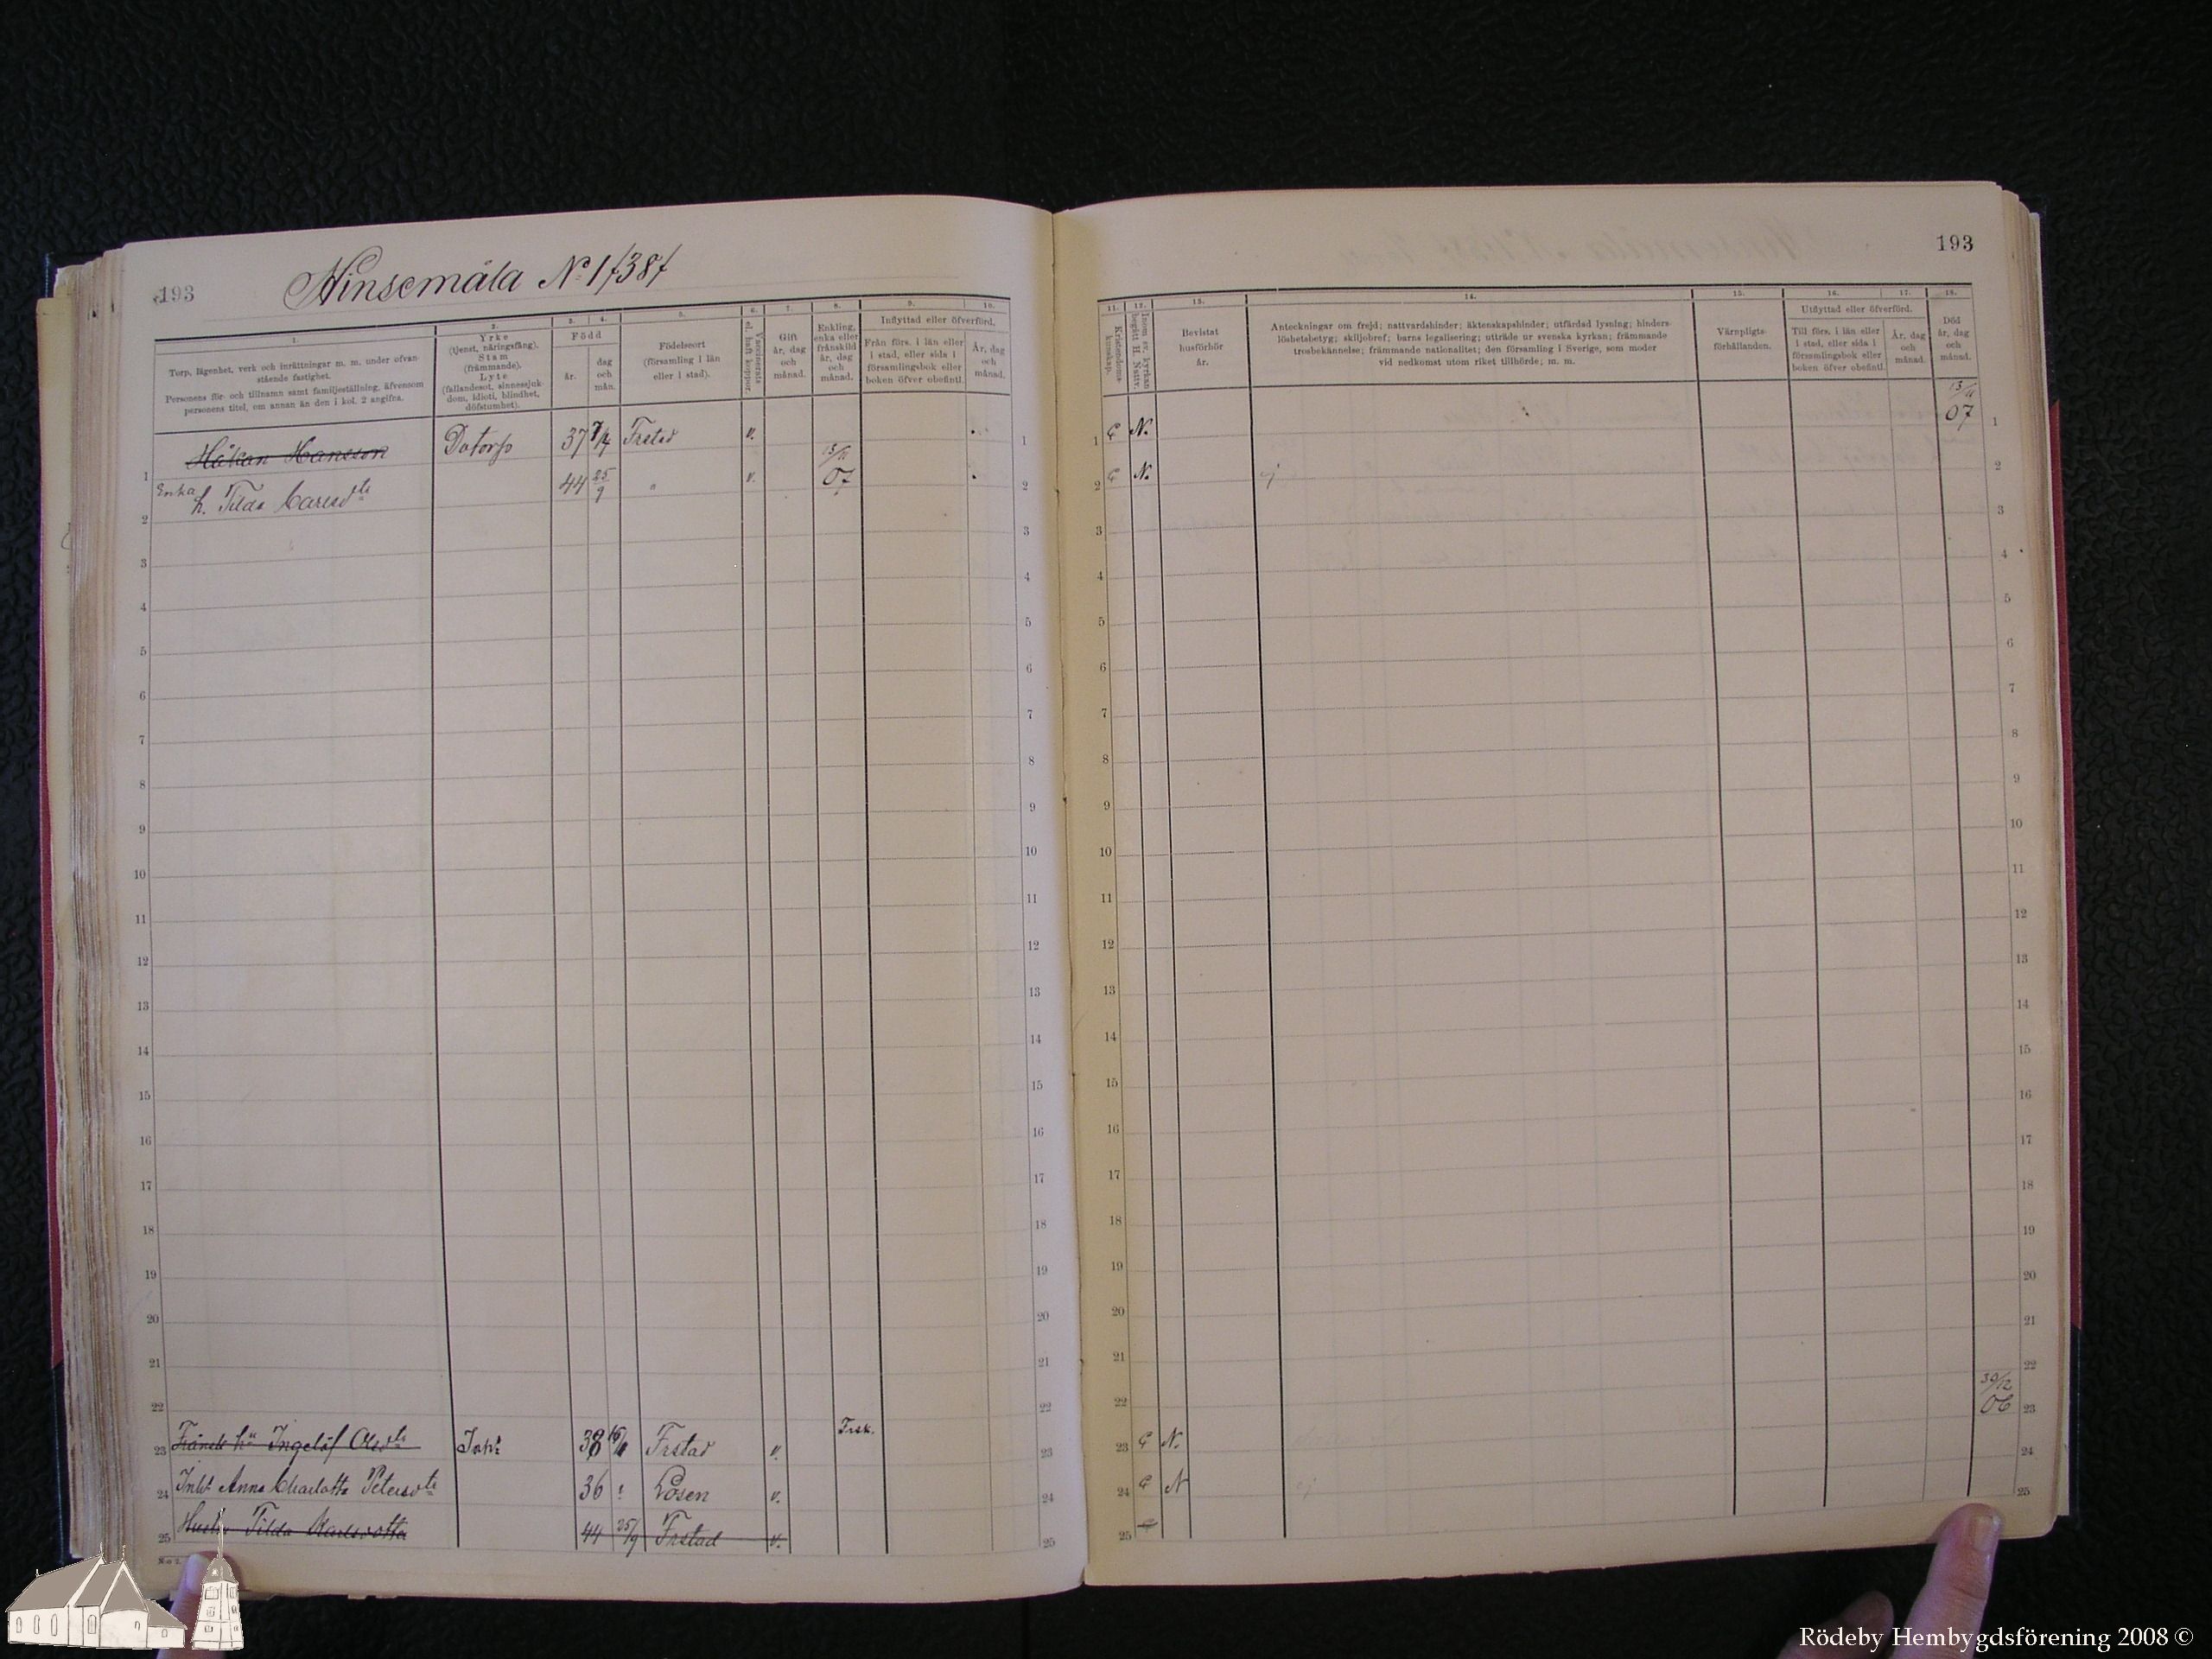 193
Hinsemåla No 1/38/
1.
Torp, lägenhet, verk och inrättningar m. m. under ofvan-
stående fastighet.
Personens för- och tillnamn samt familjeställning, äfvensom
personens titel, om annan än den i kol. 2 angifna.
2.
Yrke
(tjenst, näringsfång).
Stam
(främmande).
Lyte
(fallandesot, sinnessjuk-
dom, idioti, blindhet,
döfstumhet).
3. 4.
Född
år.
dag
och
mån.
5.
Födelseort
(församling i län
eller i stad).
6.
Vaccinerats
el. haft koppor.
7.
Gift
år, dag
och
månad.
8.
Enkling,
enka eller
frånskild
år, dag
och
månad.
9. 10.
Inflyttad eller öfverförd.
Från förs. i län eller
i stad, eller sida i
församlingsbok eller
boken öfver obefintl.
År, dag
och
månad.
Håkan Hanson Dotorp 37 7/4 Frstad v.
Enka h. Tilda Carlsdtr 44 25/9 " v. 13/11 07
1
2
3
4
5
6
7
8
9
10
11
12
13
14
15
16
17
18
19
20
21
22
23 Ingelöf Olsdtr 38 Frstad v. Frsk.
24 Inh. Anna Charlotta Petersdtr 36 ! Lösen v.
25 Tilda Karlsdotter 44 25/9 Frstad v.
No 2.
193
11.
Kristendoms-
kunskap.
12.
Inom sv. kyrkan
begått H. H. Nattv.
13.
Bevistat
husförhör
år.
14.
Anteckningar om frejd; nattvardshinder; äktenskapshinder; utfärdad lysning; hinders-
löshetsbetyg; skiljobref; barns legalisering; utträde ur svenska kyrkan; främmande
trosbekännelse; främmande nationalitet; den församling i Sverige, som moder
vid nedkomst utom riket tillhörde; m. m.
15.
Värnpligts-
förhållanden.
16. 17.
Utflyttad eller öfverförd.
Till förs. i län eller
i stad, eller sida i
församlingsbok eller
boken öfver obefintl.
År, dag
och
månad.
18.
Död
år, dag
och
månad.
1 G N. 13/11 07
2 G N.
3
4
5
6
7
8
9
10
11
12
13
14
15
16
17
18
19
20
21
22
23 G N. 30/12 06
24 G N
25
Rödeby Hembygdsförening 2008 ©